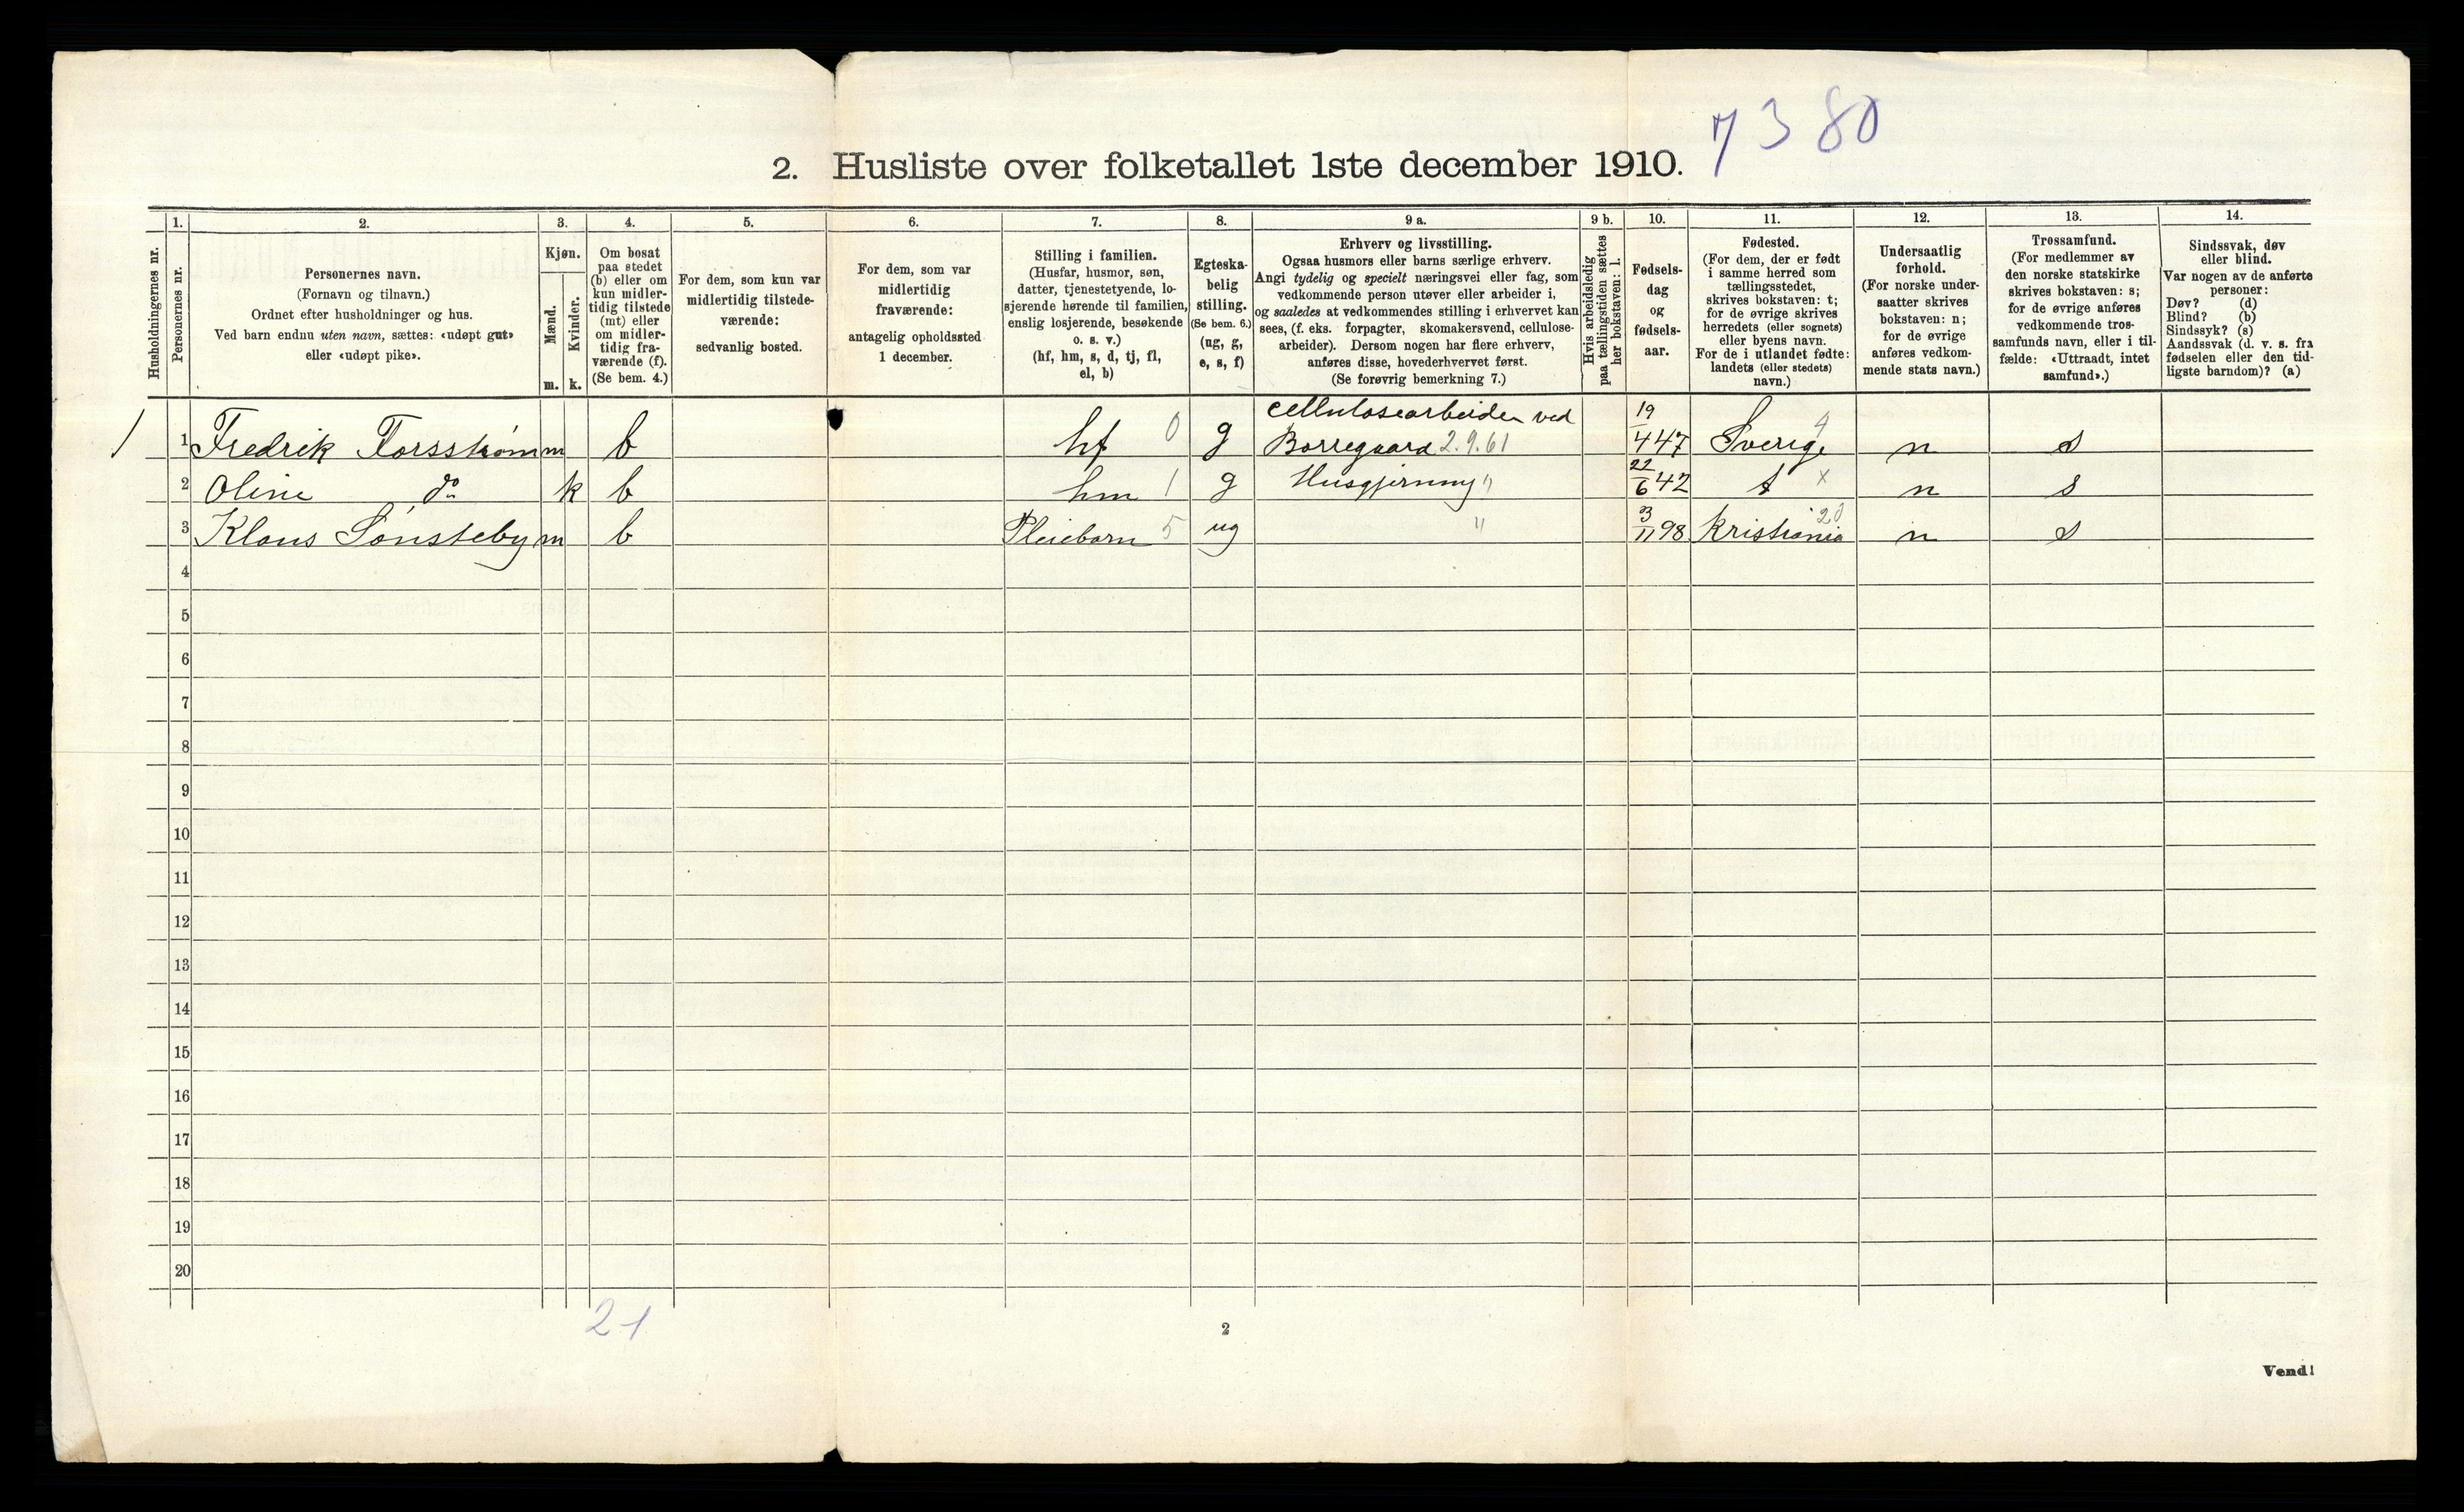 7380
2. Husliste over folketallet 1ste december 1910.
Husholdningernes nr.
1.
Personernes nr.
2.
Personernes navn.
(Fornavn og tilnavn.)
Ordnet efter husholdninger og hus.
Ved barn endnu uten navn, sættes: «udøpt gut»
eller «udøpt pike».
3.
Kjøn.
Mænd.
Kvinder.
m. k.
4.
Om bosat
paa stedet
(b) eller om
kun midler-
tidig tilstede
(mt) eller
om midler-
tidig fra-
værende (f).
(Se bem. 4.)
5.
For dem, som kun var
midlertidig tilstede-
værende:
sedvanlig bosted.
6.
For dem, som var
midlertidig
fraværende:
antagelig opholdssted
1 december.
7.
Stilling i familien.
(Husfar, husmor, søn,
datter, tjenestetyende, lo-
sjerende hørende til familien,
enslig losjerende, besøkende
o. s. v.)
(hf, hm, s, d, tj, fl,
el, b)
8.
Egteska-
belig
stilling.
(Se bem. 6.)
(ug, g,
e, s, f)
9 a.
Erhverv og livsstilling.
Ogsaa husmors eller barns særlige erhverv.
Angi tydelig og specielt næringsvei eller fag, som
vedkommende person utøver eller arbeider i,
og saaledes at vedkommendes stilling i erhvervet kan
sees, (f. eks. forpagter, skomakersvend, cellulose-
arbeider). Dersom nogen har flere erhverv,
anføres disse, hovederhvervet først.
(Se forøvrig bemerkning 7.)
9 b.
Hvis arbeidsledig
paa tællingstiden sættes
her bokstaven: l.
10.
Fødsels-
dag
og
fødsels-
aar.
11.
Fødested.
(For dem, der er født
i samme herred som
tællingsstedet,
skrives bokstaven: t;
for de øvrige skrives
herredets (eller sognets)
eller byens navn.
For de i utlandet fødte:
landets (eller stedets)
navn.)
12.
Undersaatlig
forhold.
(For norske under-
saatter skrives
bokstaven: n;
for de øvrige
anføres vedkom-
mende stats navn.)
13.
Trossamfund.
(For medlemmer av
den norske statskirke
skrives bokstaven: s;
for de øvrige anføres
vedkommende tros-
samfunds navn, eller i til-
fælde: «Uttraadt, intet
samfund».)
14.
Sindssvak, døv
eller blind.
Var nogen av de anførte
personer:
Døv? (d)
Blind? (b)
Sindssyk? (s)
Aandssvak (d. v. s. fra
fødselen eller den tid-
ligste barndom)? (a)
1 1 Fredrik Forsstrøm m b hf 0 g cellulosearbeider ved
Borregaard 2.9.61 19/4 47 Sverige 4 n s
2 Oline do k b hm 1 g Husgjerning " 22/6 42 t x n s
3 Klaus Sønsteby m b Pleiebarn 5 ug " 3/11 98 Kristiania 20 n s
4
5
6
7
8
9
10
11
12
13
14
15
16
17
18
19
20
2-1
2
Vend!